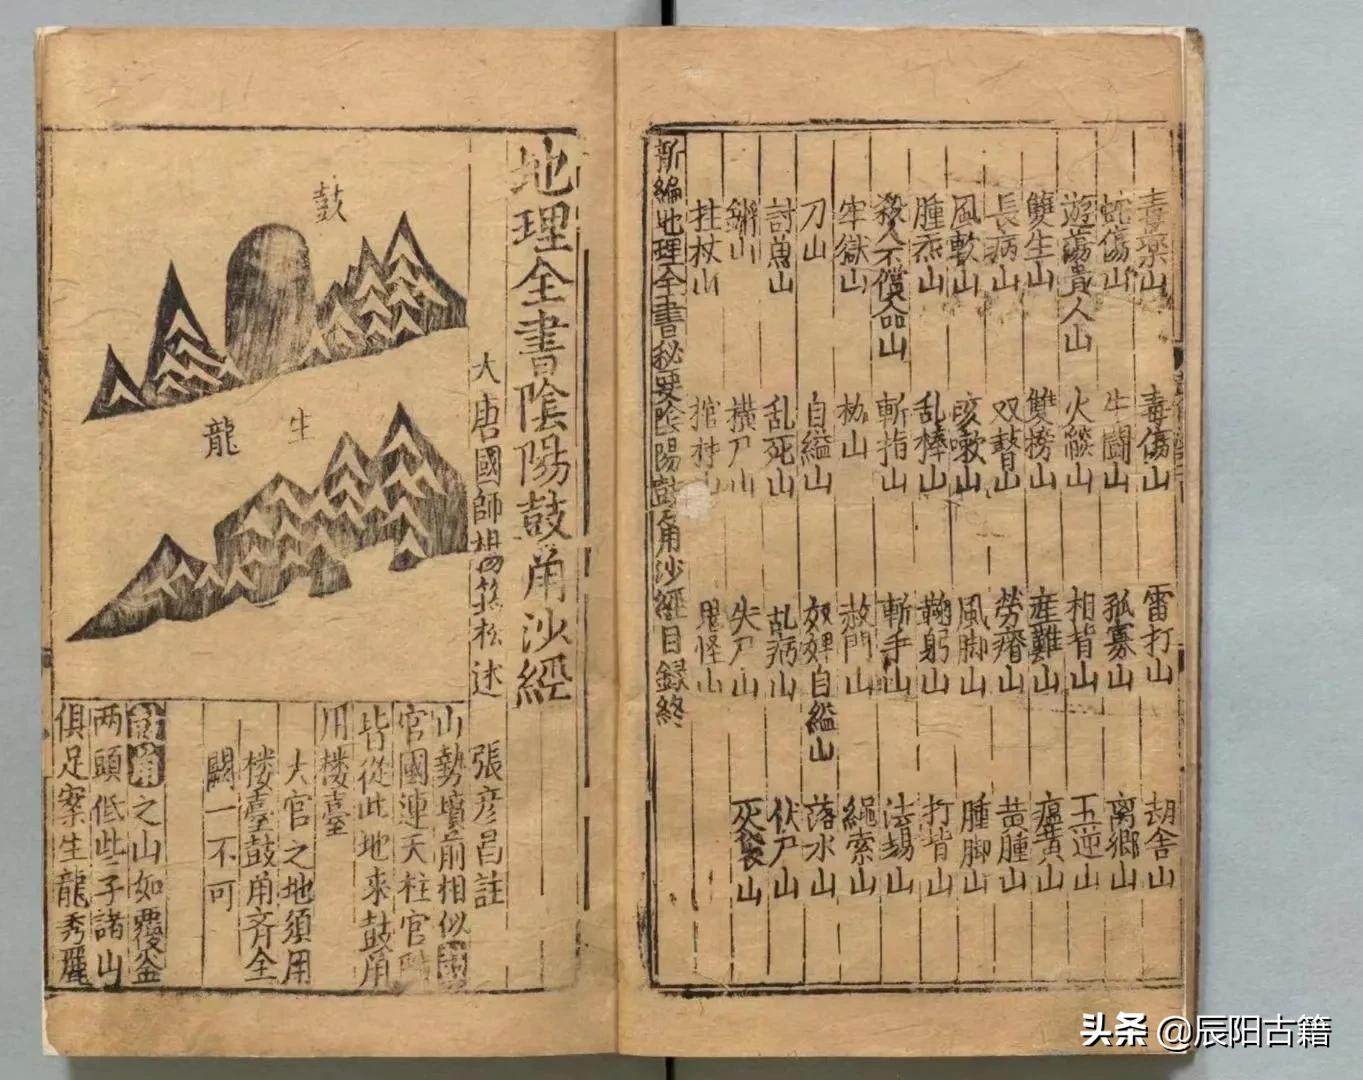 毒藥山 毒傷山 雷打山 胡舎山
蛇傷山 牛鬪山 孤寡山 离鄉山
遊蕩貴人山 火燄山 相背山 五逆山
雙生山 雙搒山 産難山 瘟黄山
長病山 双瞽山 勞瘠山 黄腫山
風軟山 咳嗽山 風脚山 腫脚山
腫𤆬山 乱棒山 鞠躬山 打背山
殺人不償命山 斬指山 斬手山 法場山
牢獄山 枷山 赦門山 繩索山
刀山 自縊山 奴婢自縊山 落水山
討魚山 乱死山 乱病山 伏尸山
鏘山 橫尸山 失尸山 灰袋山
拄杖山 棺材山 鬼怪山
新編地理全書秘要陰陽鼓角沙經目録終
地理全書陰陽鼓角沙經
大唐國師楊筠松述 張彦昌註
鼓
生
龍
山勢墳前相似
官國連天柱官
皆從此地來鼓角
用楼臺
大官之地須用
楼臺鼓角齐全
闕一不可
鼓角之山如覆釜
两頭低些子諸山
俱足案生龍秀麗
头条 @辰阳古籍